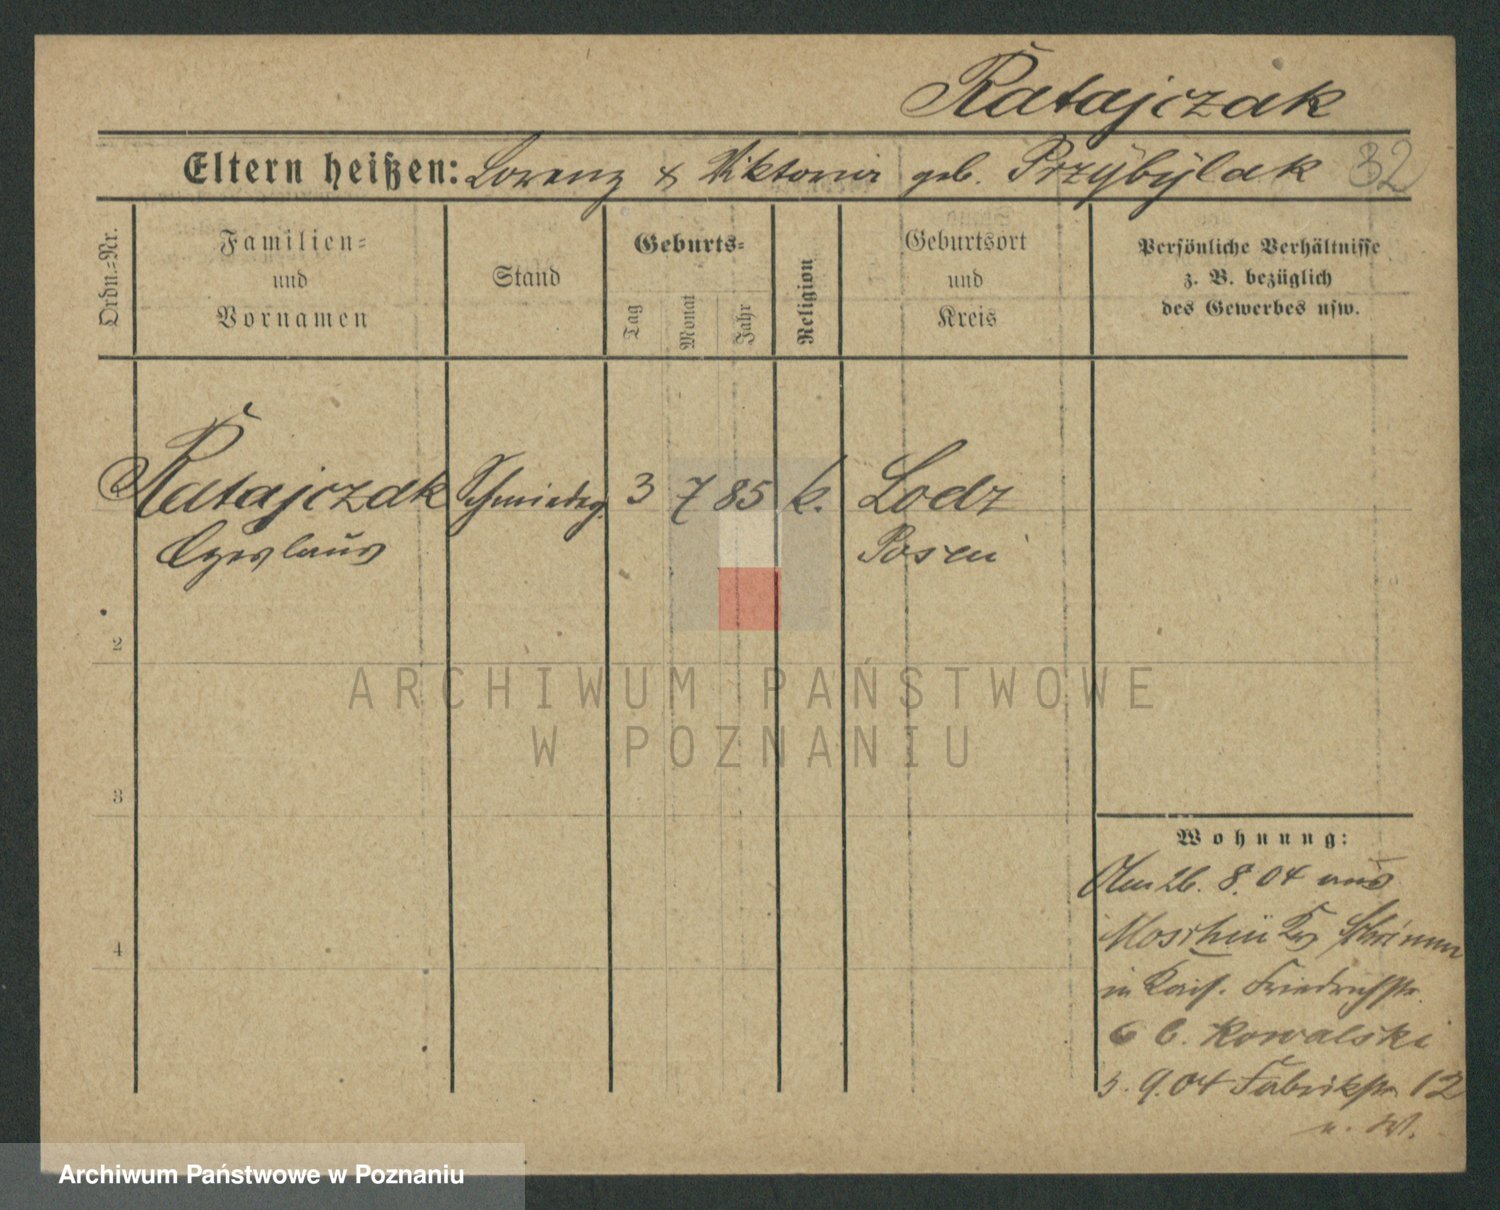 Ratajczak
Eltern heißen: Lorenz & Viktoria geb. Przÿbÿlak 32
Ordn.=Nr.
Familien=
und
Vornamen
Stand
Geburts=
Tag
Monat
Jahr
Religion
Geburtsort
und
Kreis
Persönliche Verhältnisse
z. B. bezüglich
des Gewerbes usw.
Ratajczak Schmiedeg. 3 7 85 k. Lodz
Czeslaus Posen
2
3
4
Wohnung:
Am 26. 8. 04 aus
Moschin Krs Schrimm
in Kais. Friedrichstr.
6 b. Kowalski
5. 9. 04 Fabrikstr. 12
ARCHIWUM PAŃSTWOWE
W POZNANIU
Archiwum Państwowe w Poznaniu